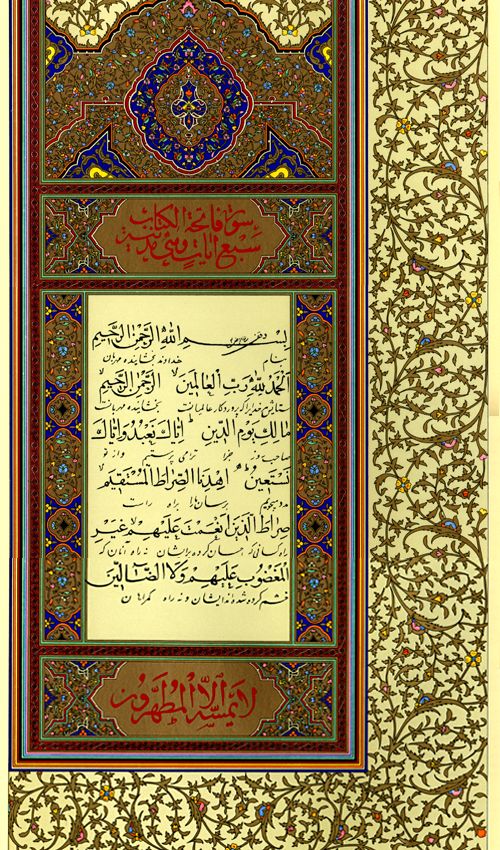 سورة فاتحة الكتاب
سبع آيات وهي مكية
بسم الله الرحمن الرحيم
بنام خداوند بخشاینده مهربان
الحمد لله رب العالمين الرحمن الرحيم
ستایش خدایرا که پروردگار عالمیانست بخشاینده مهربانست
مالك يوم الدين اياك نعبد واياك
صاحب روز جزا ترا می پرستیم و از تو
نستعين اهدنا الصراط المستقيم
مدد میجوئیم برسان ما را براه راست
صراط الذين انعمت عليهم غير
راه کسانی که احسان کرده براشان نه راه آنان که
المغضوب عليهم ولا الضالين
خشم کرده شده اند ایشان و نه راه گمراهان
لا يمسه الا المطهرون